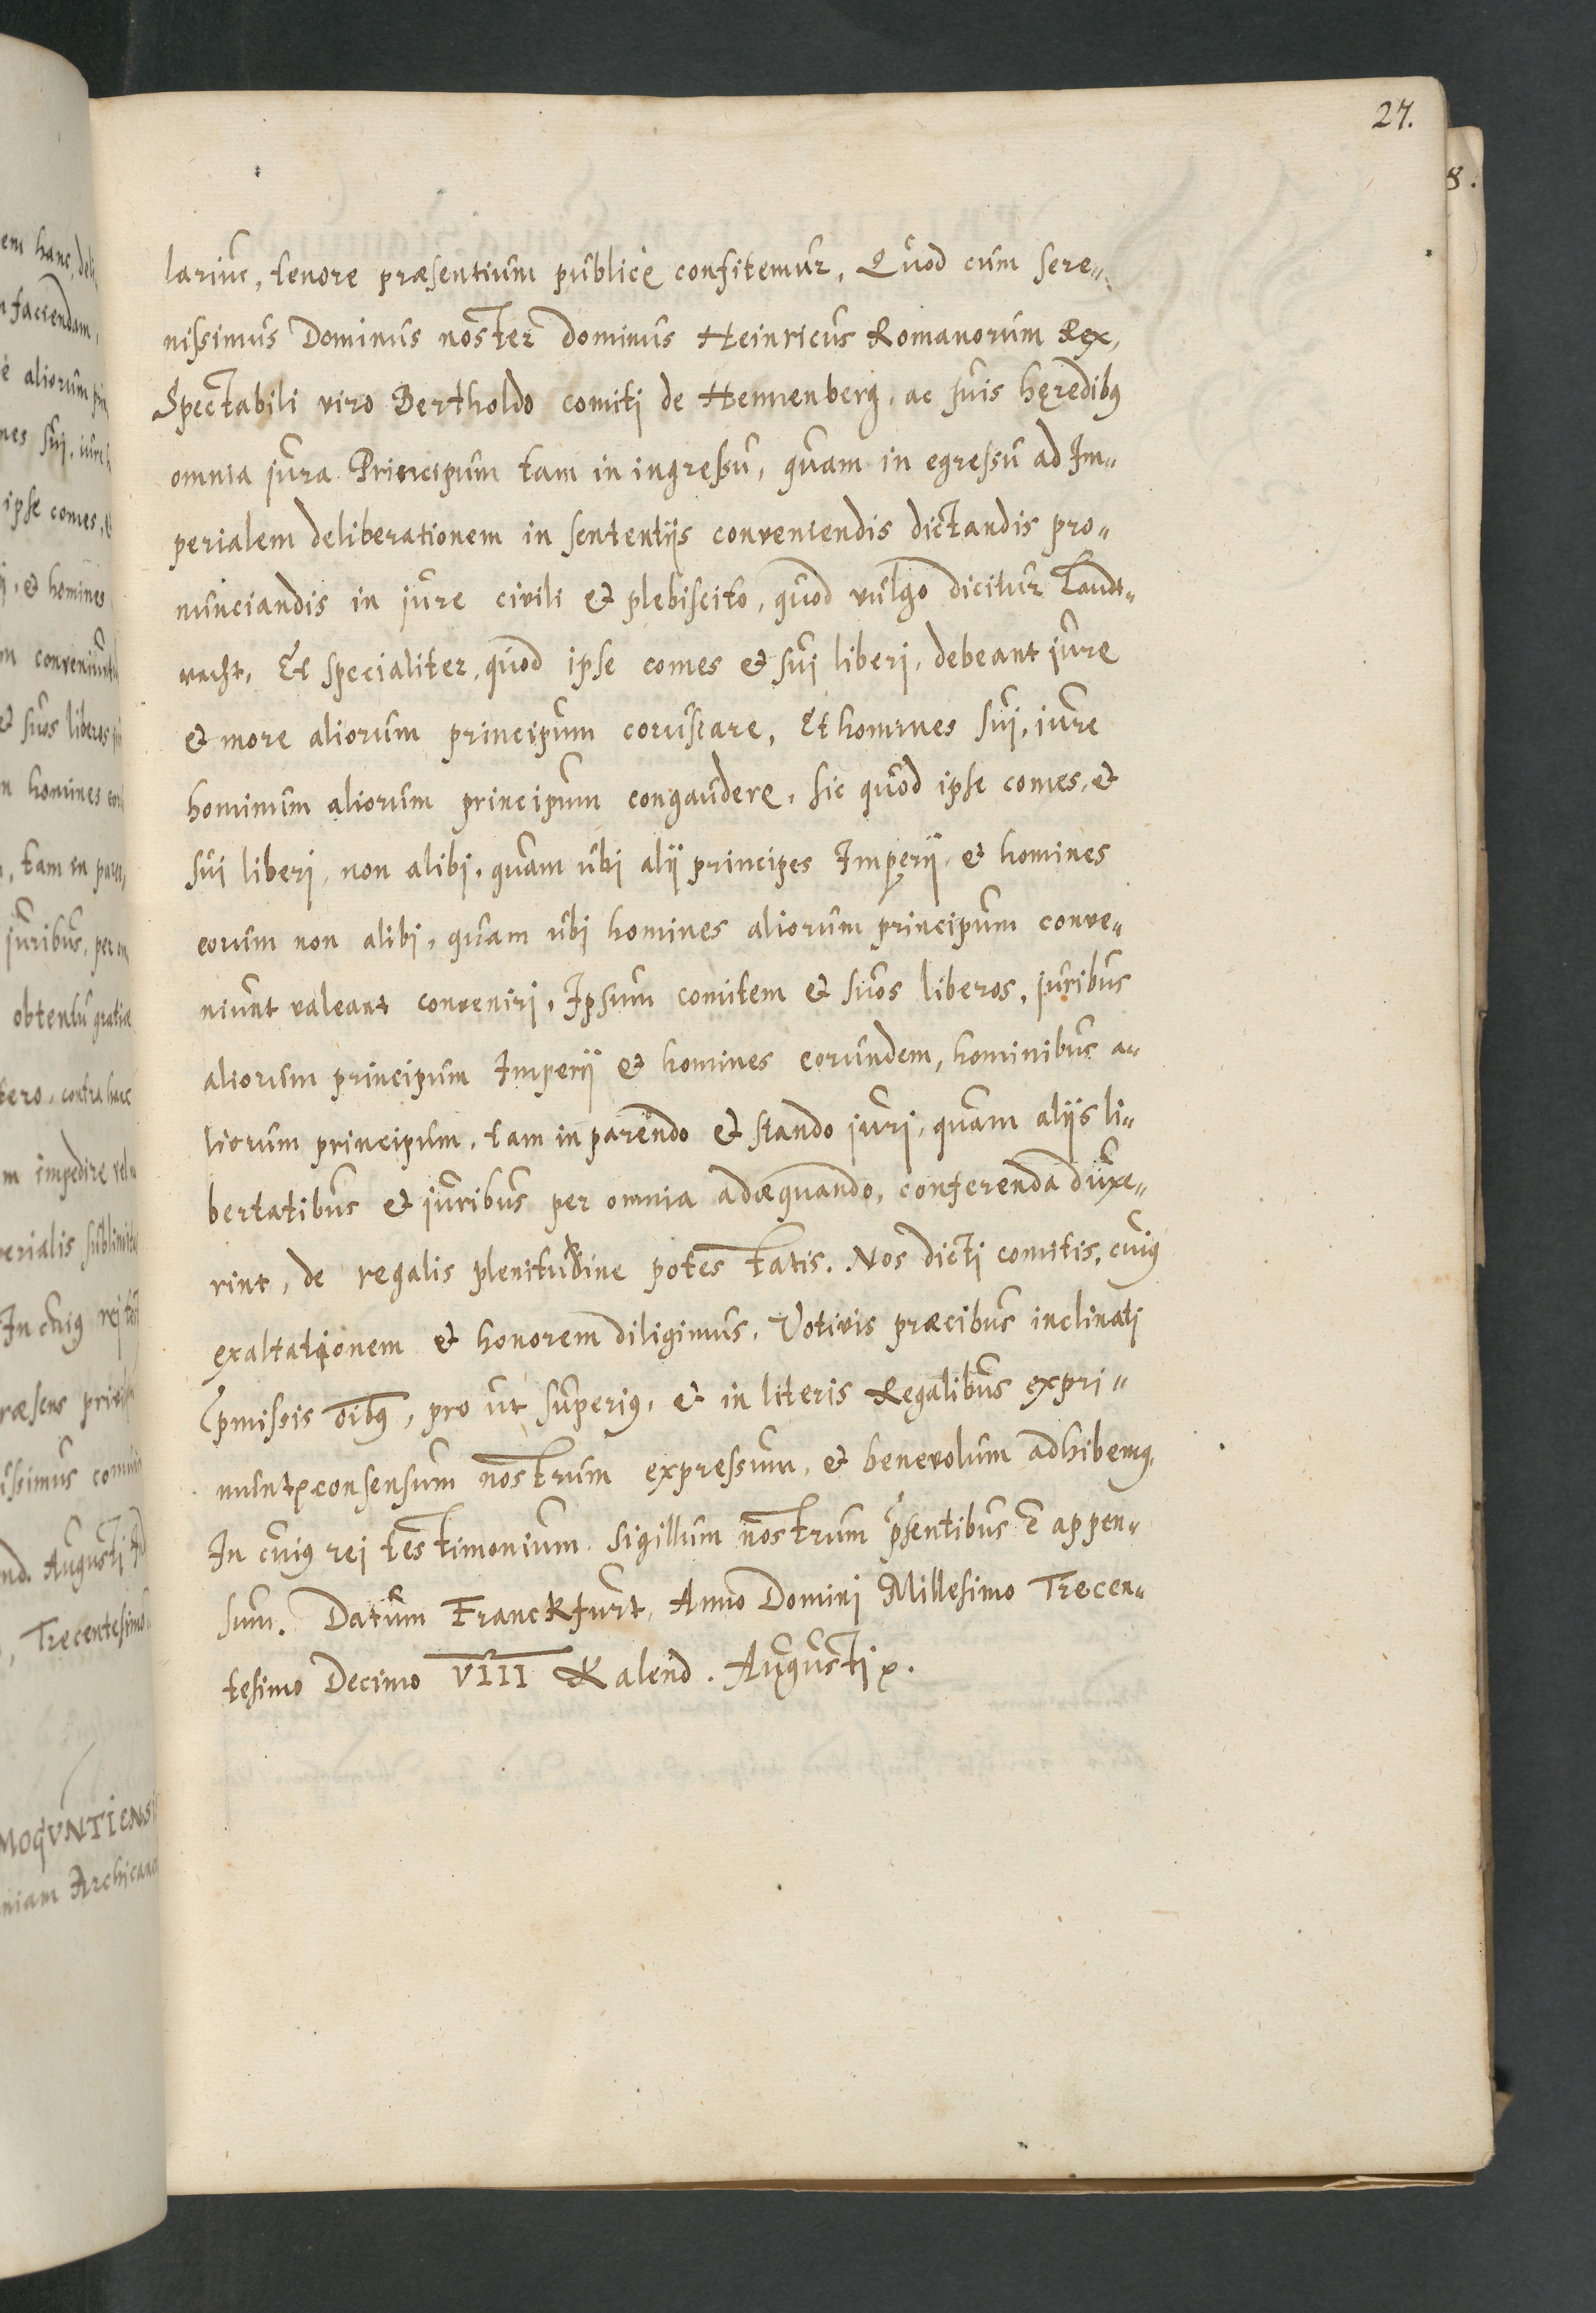 27.
8.
larius, tenore præsentium publicè confitemur, Quod cum sere„
nissimus Dominus noster dominus Heinricus Romanorum Rex,
Spectabili viro Bertholdo comiti de Hennenberg, ac suis hęredibꝯ
omnia jura Principum tam in ingressu, quam in egressu ad Im„
perialem deliberationem in sententijs conveniendis dictandis pro„
nunciandis in jure civili & plebiscito, quod vulgo dicitur Landt„
racht, Et specialiter, quod ipse comes & sui liberi, debeant jure
& more aliorum principum coruscare, Et homines sui, iure
hominum aliorum principum congaudere, sic quod ipse comes, &
sui liberi, non alibi, quam ubi alij principes Imperij & homines
eorum non alibi, quam ubi homines aliorum principum conve„
niunt valeant conveniri, Ipsum comitem & suos liberos, juribus
aliorum principum Imperij & homines eorundem, hominibus a„
liorum principum, tam in parendo & stando juri, quam alijs li„
bertatibus & juribus per omnia adæquando, conferenda duxe„
rint, de regalis plenitudine potestatis. Nos dicti comitis, cuiꝯ
exaltationem & honorem diligimus, Votivis præcibus inclinati
p̄missis oībꝯ, pro ut superiꝯ, & in literis Regalibus expri„
muntr consensum nostrum expressum, & benevolum adhibemꝯ,
In cuiꝯ rei testimonium sigillum nostrum p̄sentibus ē appen„
sum. Datum Franckfurt, Anno Domini Millesimo Trecen„
tesimo Decimo VIII Kalend. Augusti.
em hanc, deli
faciendam,
è aliorum prin
nes sui, iure
ipse comes, &
& homines
convenium
& suos liberos
n homines
, tam in paren
juribus, per
obtentu gratiæ
tero, contra hanc
m impedire vel
perialis sublimita
In cuiꝯ rej
ræsens privi
issimus
nd. Augusti
, Trecentesimo
MOGVNTIENSI
niam Archican